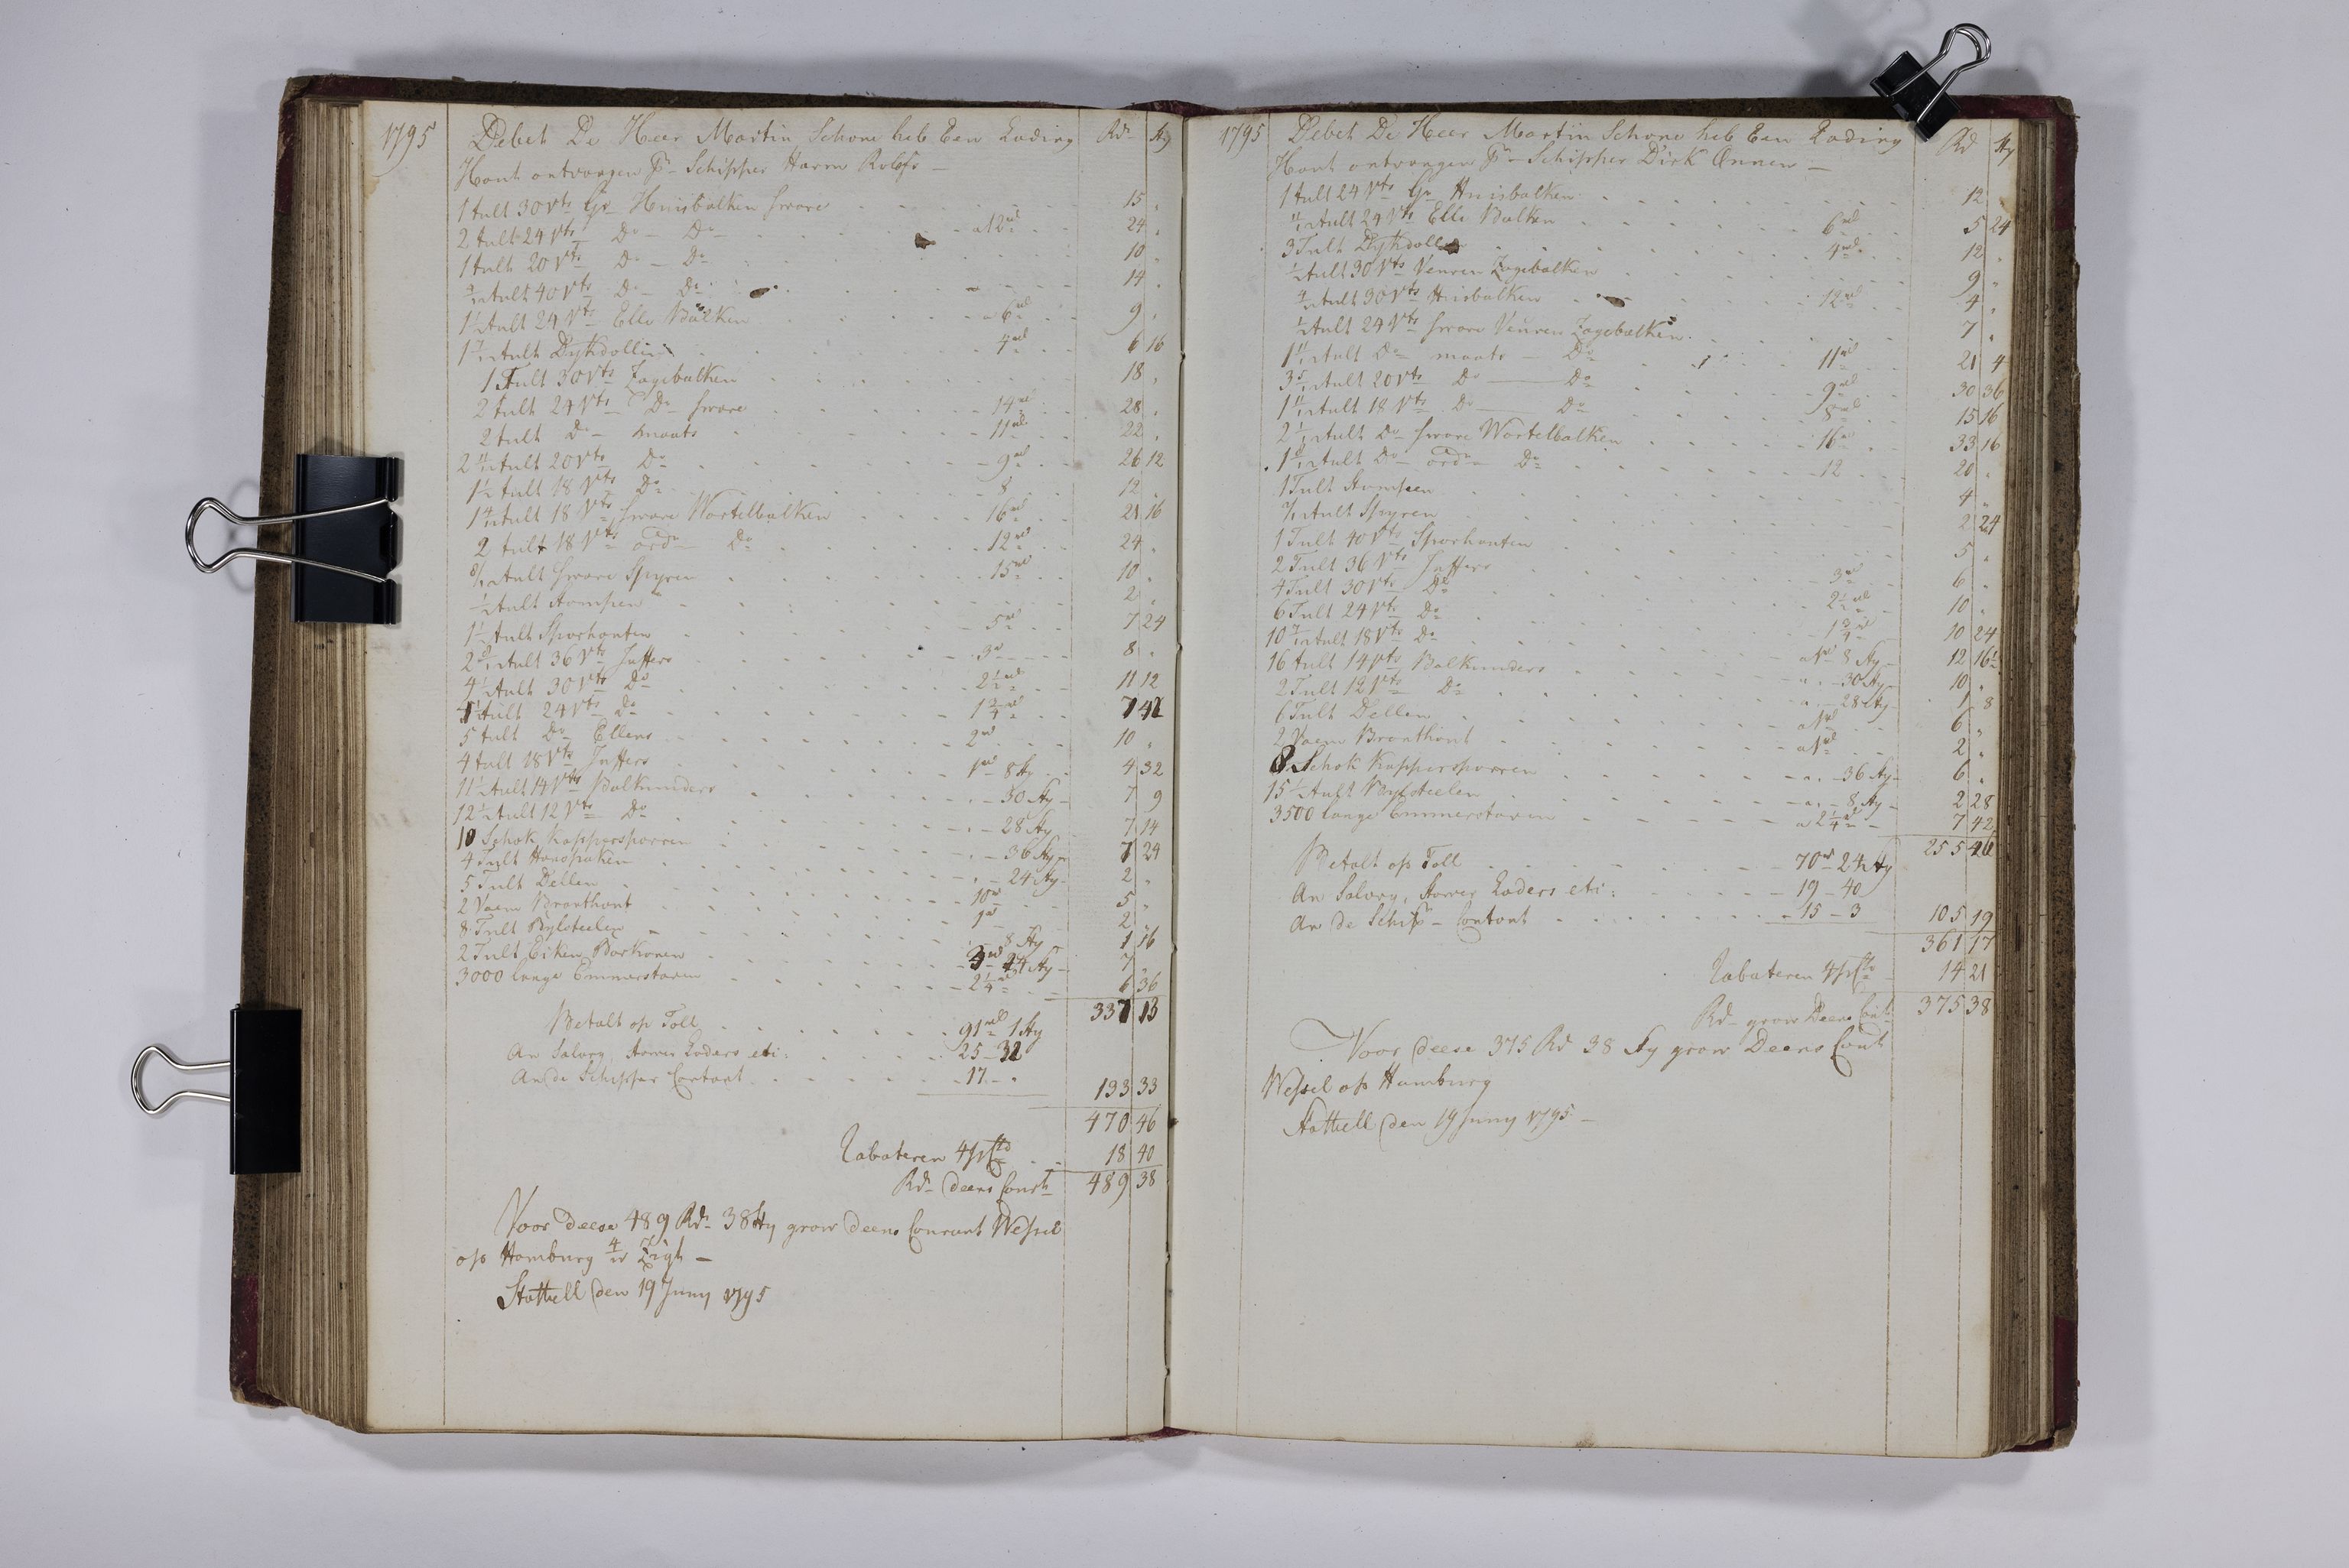 1795 Debet De Heer Martin Schone heb Een Lading Rd Sty
Hout ontvangen Pr Schipper Harm Rolefs —
1 tult 30 Vts Gr Huisbalken sware 15 .
2 tult 24 Vts Do — Do a 12 rd 24 .
1 tult 20 Vts Do — Do 10 .
tult 40 Vts Do — Do 14 .
1½ tult 24 Vts Elle Balken a 6 rd 9 .
1 7/12 tult Dykdollen 4 rd 6 16
1 Tult 30 Vts Zagebalken 18 .
2 tult 24 Vts Do sware 14 rd 28 .
2 tult Do maats 11 rd 22 .
2 11/12 tult 20 Vts Do 9 rd 26 12
1½ tult 18 Vts Do 8 12 .
1 4/12 tult 18 Vts sware Wortelbalken 16 rd 21 16
2 tult 18 Vts ord Do 12 rd 24 .
8/12 tult sware Spyren 15 rd 10 .
½ tult stompen 2 .
1½ tult Sporhouten 5 rd 7 24
2 8/12 tult 36 Vts Juffers 3 rd 8 .
4½ tult 30 Vts Do 2½ rd 11 12
tult 24 Vts Do 1¾ rd 7 42
5 tult Do Ellens 2 rd 10 .
4 tult 18 Vts Juffers 1 rd 8 Sty 4 32
11½ tult 14 Vts Balkunders 30 Sty 7 9
12½ tult 12 Vts Do 28 Sty 7 14
10 Schok Kappersporren 36 Sty 7 24
4 Tult Handspaken 24 Sty 2 .
5 Tult Dellen 1 rd 5 .
2 Vaem Branthout 1 rd 2 .
8 Tult Bylsteelen 8 Sty 1 16
2 Tult Eiken Borkonen 3 rd 24 Sty 7 .
3000 lange Emmerstaven 2¼ rd 6 36
337 13
Betalt op Toll 91 rd 1 Sty
An Salary, Stower Laders etc: 25 — 32
An de Schipper Contant 17 — . 133 33
470 46
Rabateren 4 pCto 18 40
Rd deens Court 489 38
Voor deese 489 Rd 38 Sty grow deens Courant Wessel
op Hamburg Zigt —
Stathell den 19 Juny 1795
1795 Debet De Heer Martin Schone heb Een Lading Rd Sty
Hout ontvangen Pr Schipper Dirk Onnen —
1 tult 24 Vts Gr Huisbalken 12 .
11/12 tult 24 Vts Elle Balken 6 rd 5 24
3 Tult Dykdollen 4 rd 12 .
½ tult 30 Vts Veuren Zagebalken 9 .
4/12 tult 30 Vts Huisbalken 12 rd 4 .
½ tult 24 Vts sware Veuren Zagebalken 7 .
1 11/12 tult Do maats — Do 11 rd 21 4
3 5/12 tult 20 Vts Do — Do 9 rd 30 36
1 11/12 tult 18 Vts Do — Do 8 rd 15 16
2 1/12 tult Do sware Wortelbalken 16 rd 33 16
1 8/12 tult Do ord Do 12 20 .
1 Tult Stompen 4 .
tult Spyren 2 24
1 Tult 40 Vts Sporhouten 5 .
2 Tult 36 Vts Juffers 3 rd 6 .
4 Tult 30 Vts Do 2½ rd 10 .
6 Tult 24 Vts Do 1¾ rd 10 24
10 7/12 tult 18 Vts Do a 1 rd 8 Sty 12 16½
16 tult 14 Vts Balkunders a . — 30 Sty 10 .
2 Tult 12 Vts Do a . — 28 Sty 1 8
6 Tult Dellen a 1 rd 6 .
2 Vaem Branthout a 1 rd 2 .
8 Schok Kappersporren a . — 36 Sty 6 .
15½ tult Bylsteelen a . — 8 Sty 2 28
3500 lange Emmerstaven a 2¼ rd 7 42
255
Betalt op Toll 70 rd 24 Sty
An Salary, Stower Laders etc: 19 — 40
An de Schipr Contant 15 — 3 105 19
361 17
Rabateren 4 pCto 14 21
Rd grow Deens Cont 375 38
Voor deese 375 Rd 38 Sty grow Deens Cont
Wessel op Hamburg
Stathell den 19 Juny 1795 —